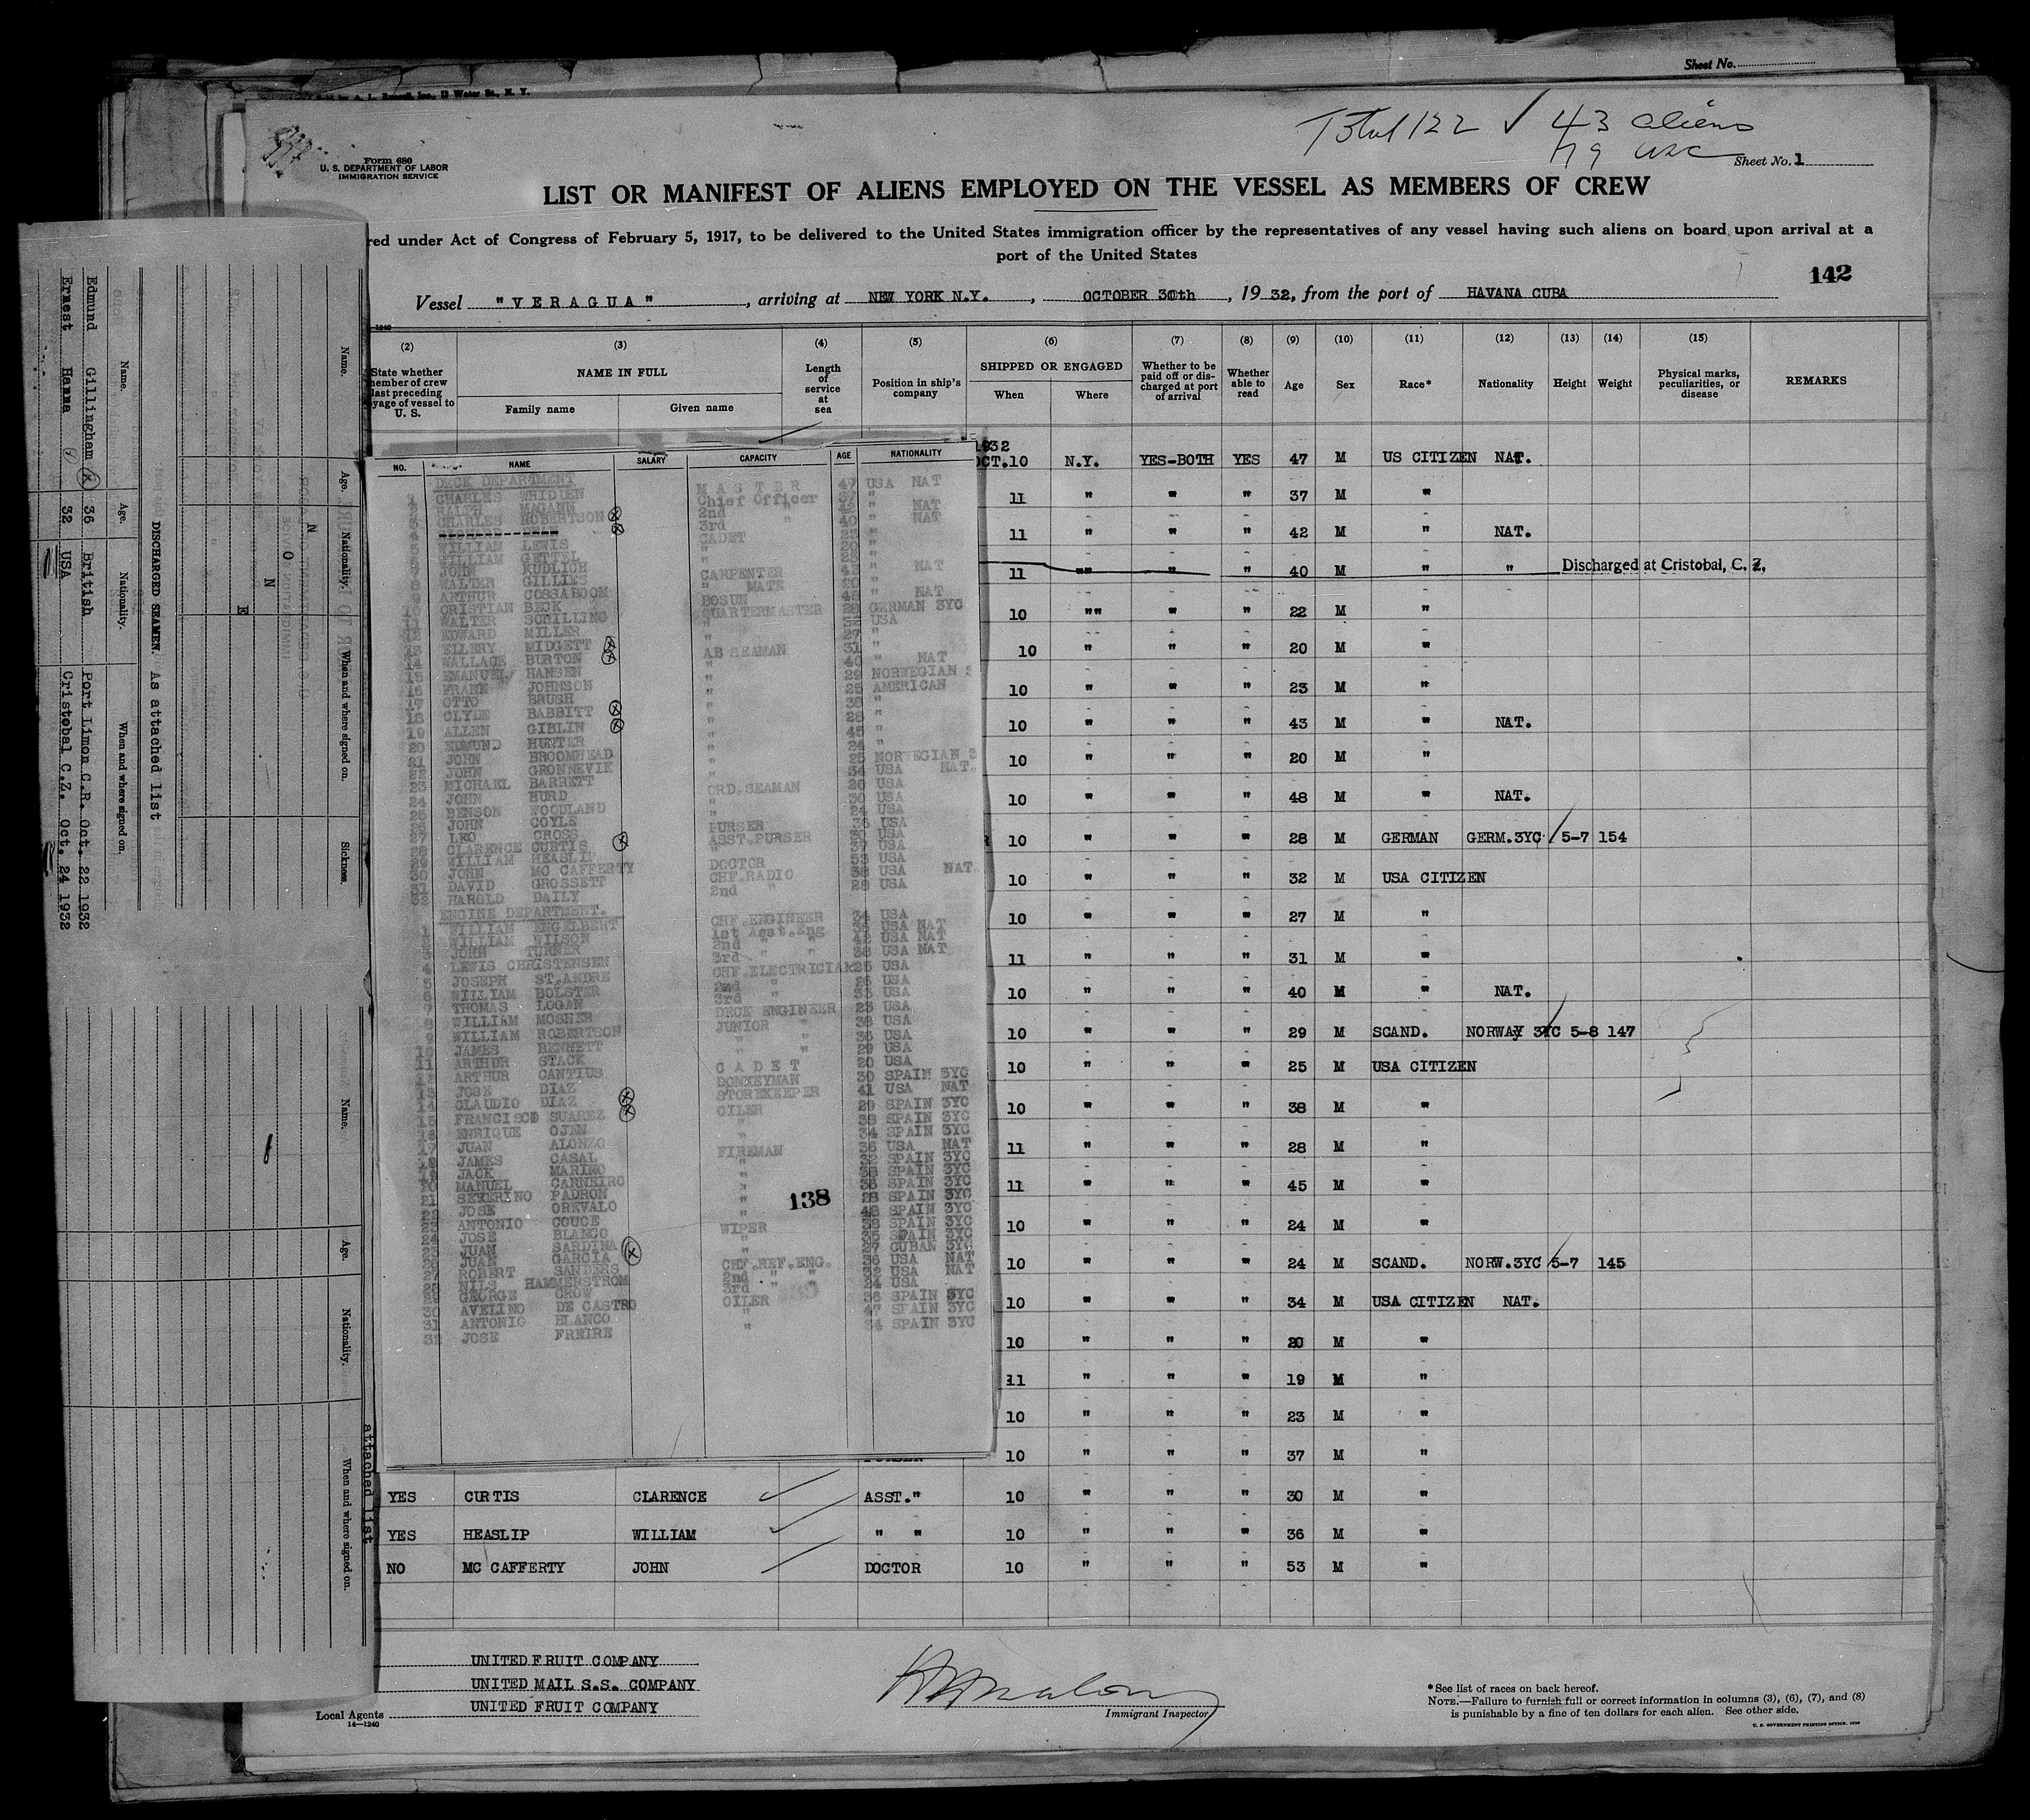 Sheet No.
Total 122 ✓ 43 aliens
79 USC
Sheet No. 1
Form 680
U. S. DEPARTMENT OF LABOR
IMMIGRATION SERVICE
LIST OR MANIFEST OF ALIENS EMPLOYED ON THE VESSEL AS MEMBERS OF CREW
red under Act of Congress of February 5, 1917, to be delivered to the United States immigration officer by the representatives of any vessel having such aliens on board upon arrival at a
port of the United States
142
Vessel "VERAGUA", arriving at NEW YORK N.Y., OCTOBER 30th, 1932, from the port of HAVANA CUBA
(2) (3) (4) (5) (6) (7) (8) (9) (10) (11) (12) (13) (14) (15)
State whether member of crew last preceding voyage of vessel to U. S.
NAME IN FULL
Family name Given name
Length of service at sea
Position in ship's company
SHIPPED OR ENGAGED
When Where
Whether to be paid off or discharged at port of arrival
Whether able to read
Age Sex Race* Nationality Height Weight
Physical marks, peculiarities, or disease
REMARKS
1932
OCT.10 N.Y. YES-BOTH YES 47 M US CITIZEN NAT.
11 " " " 37 M "
11 " " " 42 M " NAT.
11 "" " " 40 M " " Discharged at Cristobal, C. Z.
10 "" " " 22 M "
10 " " " 20 M "
10 " " " 23 M "
10 " " " 43 M " NAT.
10 " " " 20 M "
10 " " " 48 M " NAT.
10 " " " 28 M GERMAN GERM.3YC 5-7 154
10 " " " 32 M USA CITIZEN
10 " " " 27 M "
11 " " " 31 M "
10 " " " 40 M " NAT.
10 " " " 29 M SCAND. NORWAY 3YC 5-8 147
10 " " " 25 M USA CITIZEN
10 " " " 38 M "
11 " " " 28 M "
11 " " " 45 M "
10 " " " 24 M "
10 " " " 24 M SCAND. NORW.3YC 5-7 145
10 " " " 34 M USA CITIZEN NAT.
10 " " " 20 M "
11 " " " 19 M "
10 " " " 23 M "
10 " " " 37 M "
YES CURTIS CLARENCE ASST." 10 " " " 30 M "
YES HEASLIP WILLIAM " " 10 " " " 36 M "
NO MC CAFFERTY JOHN DOCTOR 10 " " " 53 M "
NO. NAME SALARY CAPACITY AGE NATIONALITY
DECK DEPARTMENT
1 CHARLES WRIDIEN MASTER 47 USA NAT
2 RALPH MAGANN Chief Officer 37 "
3 CHARLES ROBERTSON 2nd " 42 " NAT
4 3rd " 40 " NAT
5 WILLIAM LEWIS CADET
6 WILLIAM GETTEL "
7 JOHN RUDLICH "
8 WALTER GILLIES CARPENTER 43 " NAT
9 ARTHUR COSSABOOM " MATE 20 "
10 CRISTIAN BECK BOSUN 48 " NAT
11 WALTER SCHILLING QUARTERMASTER 28 GERMAN 3YC
12 EDWARD MILLER " 32 USA
13 ELLERY MIDGETT " 27 "
14 WALLACE BURTON AB SEAMAN 31 "
15 EMANUEL HANSEN " 40 " NAT
16 FRANK JOHNSON " 29 NORWEGIAN
17 OTTO BRUSH " 25 AMERICAN
18 CLYDE BABBITT " 38 "
19 ALLEN GIBLIN " 28 "
20 EDMUND HUNTER " 45 "
21 JOHN BROOMHEAD " 24 "
22 JOHN GRONNEVIK " 25 NORWEGIAN 3
23 MICHAEL BARRETT " 34 USA NAT.
24 JOHN HURD ORD.SEAMAN 20 USA
25 BENSON WOODLAND "
26 JOHN COYLE
27 LEO CROSS PURSER
28 CLARENCE CURTIS ASST.PURSER 30 USA
29 WILLIAM HEASLIP "
30 JOHN MC CAFFERTY DOCTOR 53 USA
31 DAVID GROSSETT CHF.RADIO 38 USA NAT.
32 HAROLD DAILY 2nd " 28 USA
ENGINE DEPARTMENT.
1 WILLIAM ENGELBERT CHF.ENGINEER 34 USA
2 WILLIAM WILSON 1st Asst.Eng 36 USA NAT
3 JOHN TURNER 2nd " " 42 USA NAT
4 LEWIS CHRISTENSEN 3rd " " 38 USA NAT
5 JOSEPH ST.ANDRE CHF.ELECTRICIAN 25 USA
6 WILLIAM BOLSTER 2nd " 26 USA
7 THOMAS LOGAN 3rd " 33 USA
8 WILLIAM MOSHER DECK ENGINEER 23 USA
9 WILLIAM ROBERTSON JUNIOR " 38 USA
10 JAMES BENNETT " " 36 USA
11 ARTHUR STACK " " 29 USA
12 ARTHUR CANTIUS CADET 20 USA
13 JOSE DIAZ DONKEYMAN 30 SPAIN 3YC
14 CLAUDIO DIAZ STOREKEEPER 41 USA NAT
15 FRANCISCO SUAREZ OILER 29 SPAIN 3YC
16 ENRIQUE OJEN " 38 SPAIN 3YC
17 JUAN ALONZO " 34 SPAIN 3YC
18 JAMES CASAL FIREMAN 36 USA NAT
19 JACK MARINO " 32 SPAIN 3YC
20 MANUEL CARNEIRO " 38 SPAIN 3YC
21 SEVERINO PADRON " 36 SPAIN 3YC
22 JOSE OREVALO " 28 SPAIN 3YC
23 ANTONIO COUCE " 48 SPAIN 3YC
24 JOSE BLANCO WIPER 38 SPAIN 3YC
25 JUAN SARDINA " 35 SPAIN 3YC
26 JUAN GARCIA " 27 CUBAN 3YC
27 ROBERT SANDERS CHF.REF.ENG. 36 USA NAT
28 NILS HAMMERSTROM 2nd " " 32 USA NAT
29 GEORGE CROW 3rd " " 24 USA
30 AVELINO DE CASTRO OILER 36 SPAIN 3YC
31 ANTONIO BLANCO " 47 SPAIN 3YC
32 JOSE FREIRE " 34 SPAIN 3YC
138
UNITED FRUIT COMPANY
UNITED MAIL S.S. COMPANY
UNITED FRUIT COMPANY
Local Agents
14—1240
Immigrant Inspector
*See list of races on back hereof.
NOTE.—Failure to furnish full or correct information in columns (3), (6), (7), and (8)
is punishable by a fine of ten dollars for each alien. See other side.
U. S. GOVERNMENT PRINTING OFFICE
Name. Age. Nationality. When and where signed on. Sickness.
DISCHARGED SEAMEN. As attached list
Name. Age. Nationality. When and where signed on.
Edmund Gillingham 36 British Port Limon C.R. Oct. 22 1932
Ernest Hanna 32 USA Cristobal C.Z. Oct. 24 1932
N
O
N
E
Name. Age. Nationality. When and where signed on.
attached list